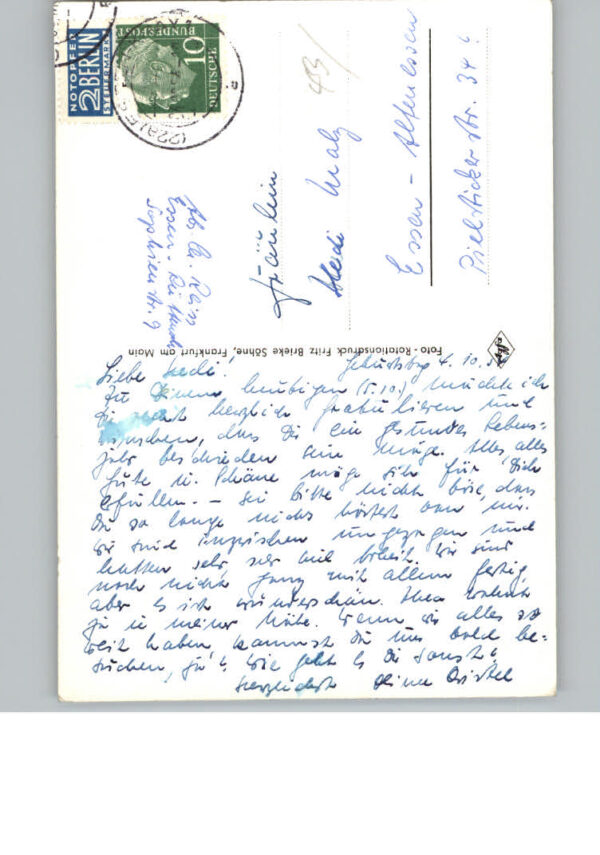 NOTOPFER
2 BERLIN
STEUERMARKE
DEUTSCHE
BUNDESPOST
10
(22a) ES
43/
Fräulein
Heidi
Essen - Altenessen
Pielsticker str. 34
Abs. Ch.
Essen -
Sophienstr. 9
Foto - Rotationsdruck Fritz Brieke Söhne, Frankfurt am Main
Geburtstag 4.10.
Liebe Heidi!
Zu Deinem heutigen (5.10.) möchte ich
Dir recht herzlich gratulieren und
wünschen, dass Dir ein gesundes Lebens-
jahr beschieden sein möge. Alles, alles
Gute u. Schöne möge sich für Dich
erfüllen. - Sei bitte nicht böse, dass
Du so lange nichts hörtest von mir.
Wir sind inzwischen umgezogen und
hatten sehr, sehr viel Arbeit. Wir sind
noch nicht ganz mit allem fertig,
aber es ist wunderschön. Thea wohnt
ja in meiner Nähe. Wenn wir alles so
weit haben, kannst Du uns bald be-
suchen, ja? Wie geht es Dir sonst?
Herzlichst Deine Christel